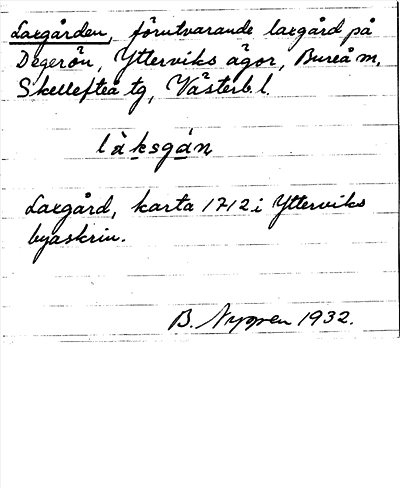 Laxgården, förutvarande laxgård på
Degerön, Ytterviks ägor, Bureå sn,
Skellefteå tg, Västerb. l.
làksgán
Laxgård, karta 1712 i Ytterviks
byaskrin.
B. Nyman 1932.